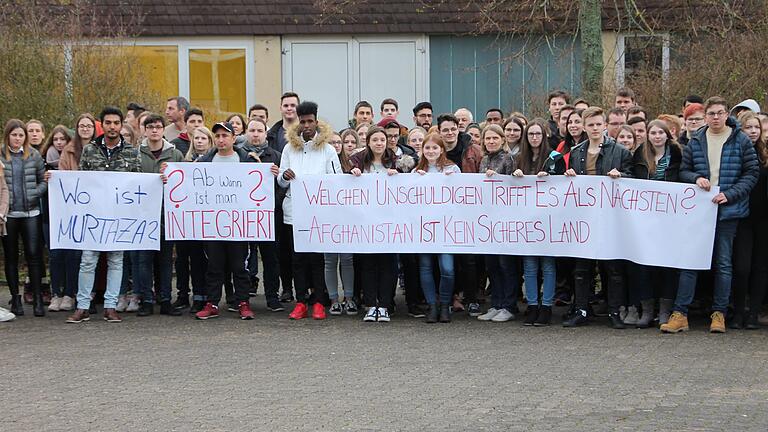 WO IST
MURTAZA?
? AB WANN ?
IST MAN
INTEGRIERT
WELCHEN UNSCHULDIGEN TRIFFT ES ALS NÄCHSTEN?
-AFGHANISTAN IST KEIN SICHERES LAND